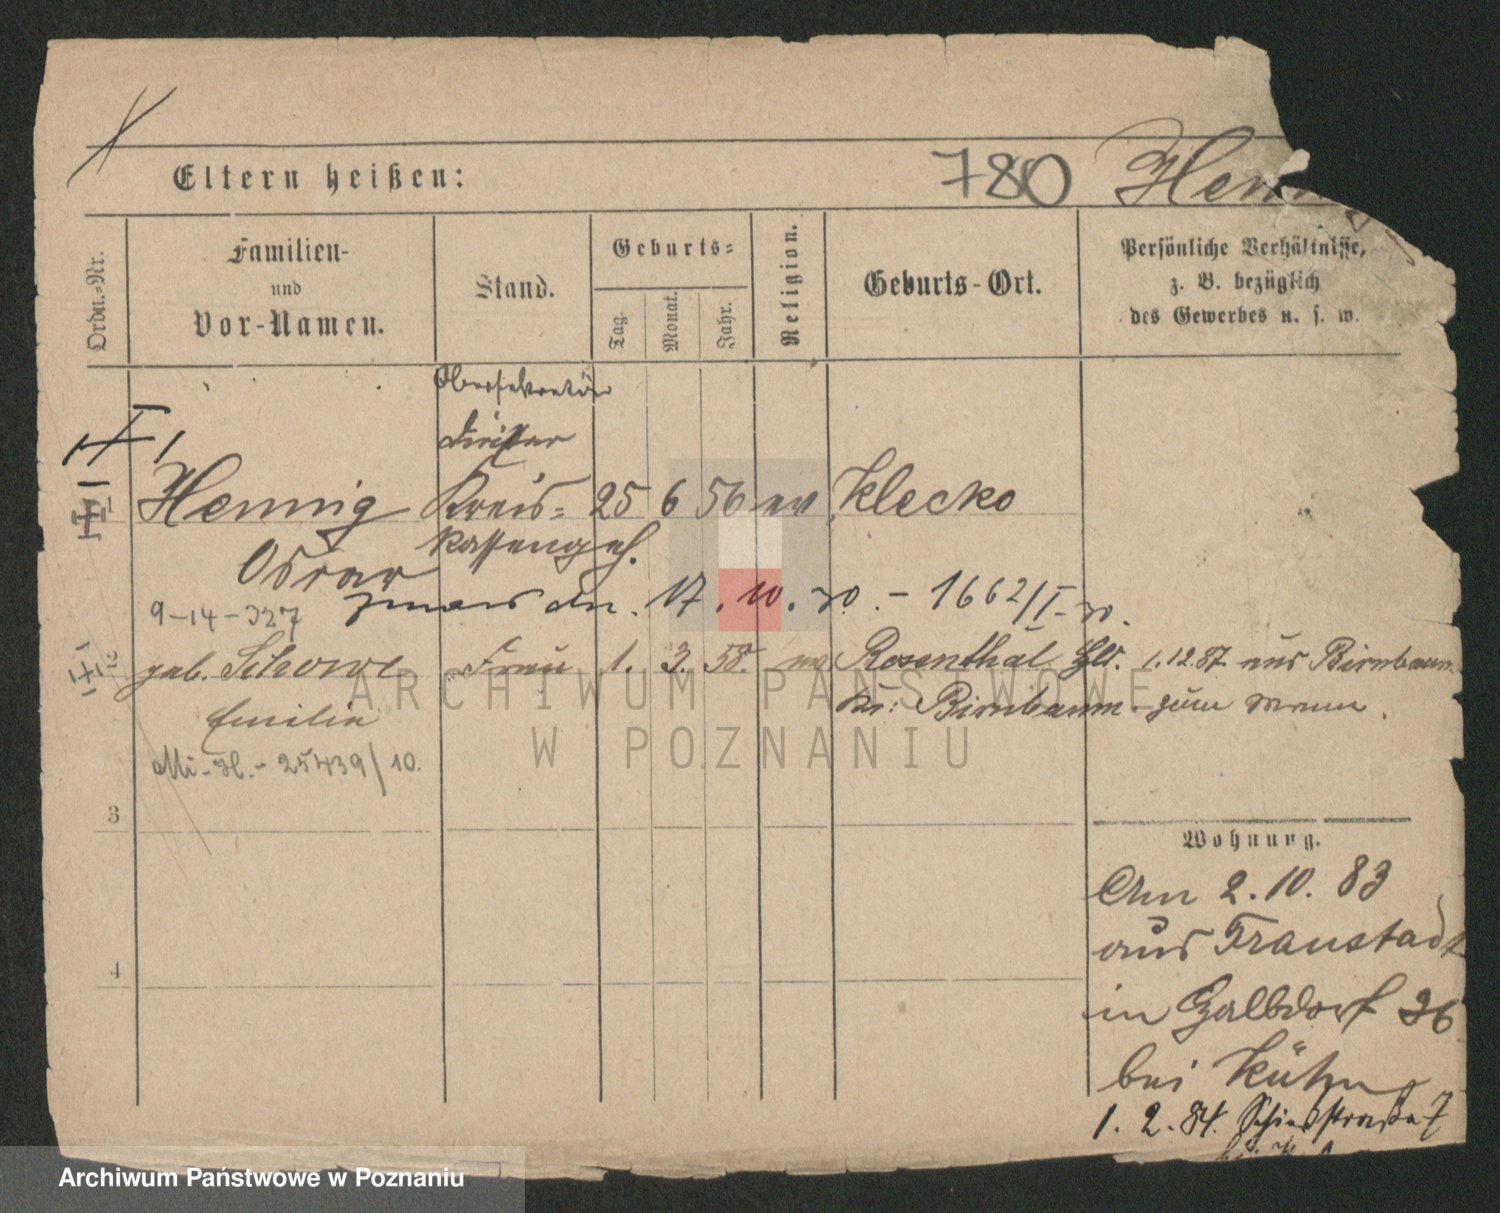 780 Hennig
Eltern heißen:
Ordn.-Nr.
Familien-
und
Vor-Namen.
Stand.
Geburts-
Tag.
Monat.
Jahr.
Religion.
Geburts-Ort.
Persönliche Verhältnisse,
z. B. bezüglich
des Gewerbes u. s. w.
Obersekretär
1
Hennig Kreis- 25 6 56 ev Klecko
Kassengeh.
Oskar
17. 10. 30. - 1662/I-30.
9-14-327
2
geb. Schowe Frau 1. 3. 58. ev Rosenthal 1.12.87 aus Birnbaum
Emilie Kr: Birnbaum zum Mann.
25439/10.
3
4
Wohnung.
Am 2.10.83
aus Fraustadt
in Halbdorf 36
bei Kühn
1. 2. 84. 7
ARCHIWUM PAŃSTWOWE
W POZNANIU
Archiwum Państwowe w Poznaniu